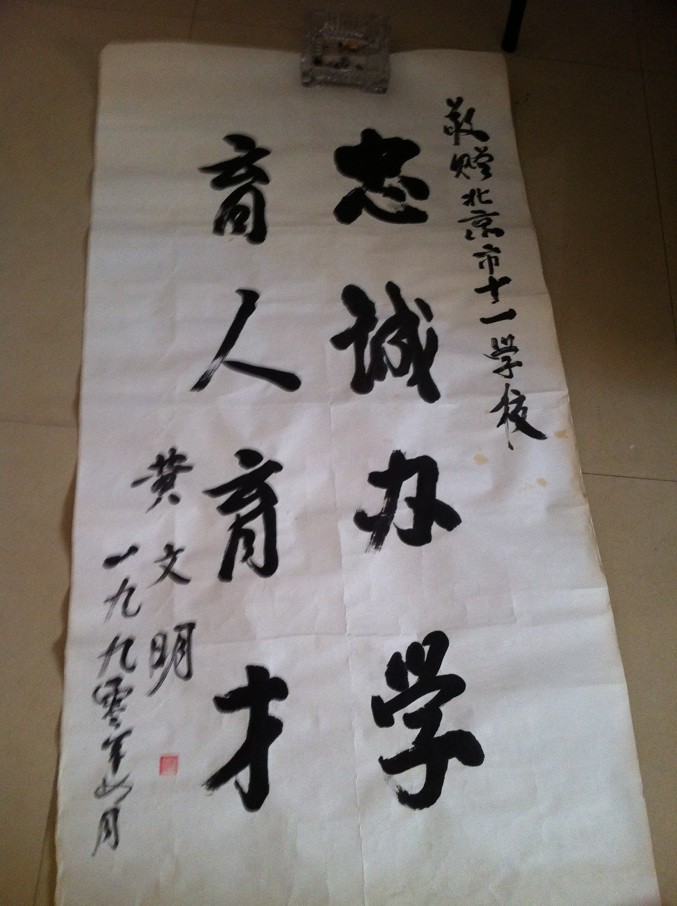 敬赠北京市十一学校
忠诚办学
育人育才
黄文明
一九九零年六月